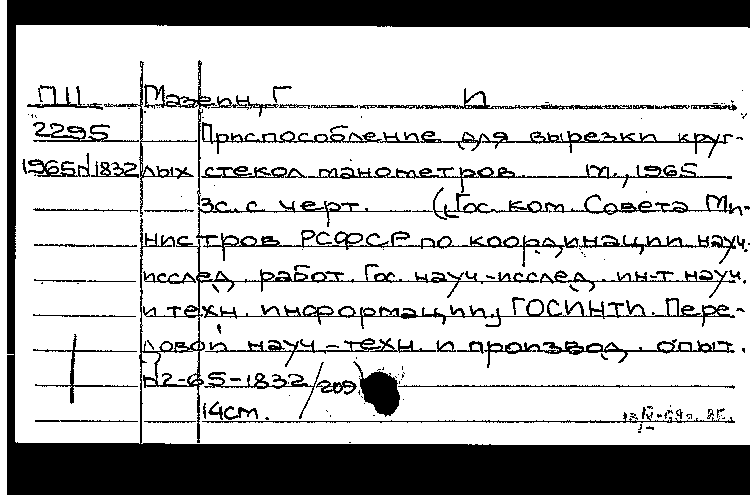 П11 Мазепн, Г И
2295 Приспособление для вырезки круг-
1965/1832 лых стекол манометров. М., 1965
3с. с черт. (Гос. ком. Совета Ми-
нистров РСФСР по координации науч.
исслед. работ. Гос. науч.-исслед. ин-т науч.
и техн. информации, ГОСИНТИ. Пере-
довой науч.-техн. и производ. опыт.
№2-65-1832/209)
14см.